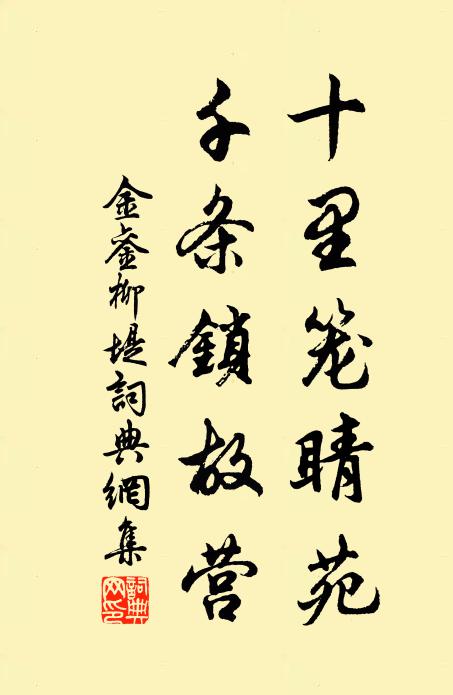 十里笼晴苑
千条鎖故营
金銮柳堤詞典網集
詞典网印